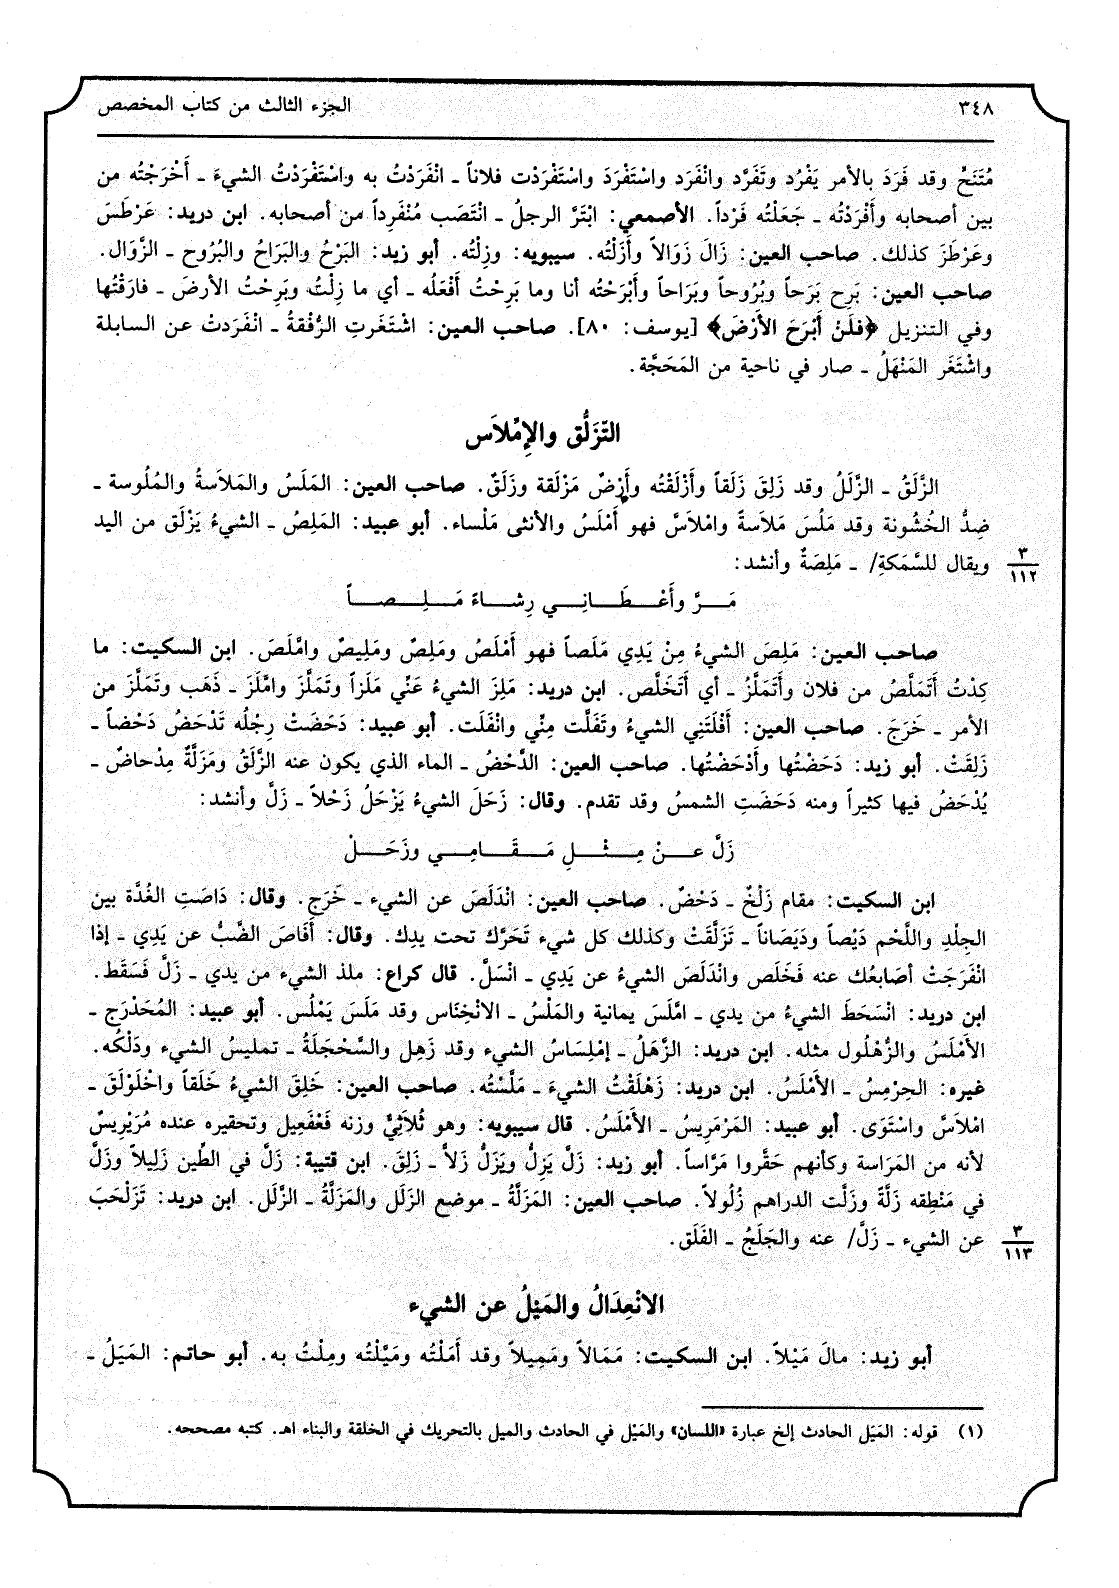 ٣٤٨ الجزء الثالث من كتاب المخصص
مُتَنَحٍّ وقد فَرَدَ بالأمر يَفْرُد وتَفَرَّد وانْفَرَد واسْتَفْرَدَ واسْتَفْرَدْت فلاناً ـ انْفَرَدْتُ به واسْتَفْرَدْتُ الشيءَ ـ أَخْرَجْتُه من
بين أصحابه وأَفْرَدْتُه ـ جَعَلْتُه فَرْداً. الأصمعي: ابْتَرَّ الرجلُ ـ انْتَصَب مُنْفَرِداً من أصحابه. ابن دريد: عَرْطَسَ
وعَرْطَزَ كذلك. صاحب العين: زَالَ زَوَالاً وأَزَلْتُه. سيبويه: وزِلْتُه. أبو زيد: البَرْحُ والبَرَاحُ والبُرُوح ـ الزَّوَال.
صاحب العين: بَرِح بَرَحاً وبُرُوحاً وبَرَاحاً وأَبْرَحْته أنا وما بَرِحْتُ أَفْعَلُه ـ أي ما زِلْتُ وبَرِحْتُ الأرضَ ـ فارَقْتُها
وفي التنزيل ﴿فلَنْ أَبْرَحَ الأَرْضَ﴾ [يوسف: ٨٠]. صاحب العين: اشْتَغَرتِ الرُّفْقةُ ـ انْفَرَدتْ عن السابلة
واشْتَغَر المَنْهَلُ ـ صار في ناحية من المَحَجَّة.
التّزَلُّق والإمِّلاَس
الزَّلَقُ ـ الزَّلَلُ وقد زَلِقَ زَلَقاً وأَزْلَقْتُه وأَرْضٌ مَزْلَقة وزَلَقٌ. صاحب العين: المَلَسُ والمَلاَسةُ والمُلُوسة ـ
ضِدُّ الخُشُونة وقد مَلُسَ مَلاَسةً وامْلاَسَّ فهو أَمْلَسُ والأنثى مَلْساء. أبو عبيد: المَلِصُ ـ الشيءُ يَزْلَق من اليد
ويقال للسَّمَكةِ/ ـ مَلِصَةٌ وأنشد:
٣
١١٢
مَـرَّ وأَعْـطَـانِـي رِشـاءً مَـلِـصـاً
صاحب العين: مَلِصَ الشيءُ مِنْ يَدِي مَلَصاً فهو أَمْلَصُ ومَلِصٌ ومَلِيصٌ وامَّلَصَ. ابن السكيت: ما
كِدْتُ أَتَمَلَّصُ من فلان وأَتَمَلَّزُ ـ أي أَتَخَلَّص. ابن دريد: مَلِزَ الشيءُ عَنِّي مَلَزاً وتَمَلَّزَ وامَّلَزَ ـ ذَهَب وتَمَلَّزَ من
الأمر ـ خَرَجَ. صاحب العين: أَفْلَتَنِي الشيءُ وتَفَلَّت مِنِّي وانْفَلَت. أبو عبيد: دَحَضَتْ رِجْلُه تَدْحَضُ دَحْضاً ـ
زَلِقَتْ. أبو زيد: دَحَضْتُها وأَدْحَضْتُها. صاحب العين: الدَّحْضُ ـ الماء الذي يكون عنه الزَّلَقُ ومَزَلَّةٌ مِدْحاضٌ ـ
يُدْحَضُ فيها كثيراً ومنه دَحَضَتِ الشمسُ وقد تقدم. وقال: زَحَلَ الشيءُ يَزْحَلُ زَحْلاً ـ زَلَّ وأنشد:
زَلَّ عـنْ مِـثْـلِ مَـقَـامِـي وزَحَـلْ
ابن السكيت: مقام زَلْخٌ ـ دَحْضٌ. صاحب العين: انْدَلَصَ عن الشيء ـ خَرَج. وقال: دَاصَتِ الغُدَّة بين
الجِلْدِ واللَّحْم دَيْصاً ودَيَصَاناً ـ تَزَلَّقَتْ وكذلك كل شيء تَحَرَّك تحت يدِك. وقال: أَفَاصَ الضَّبُّ عن يَدِي ـ إذا
انْفَرَجَتْ أصَابعُك عنه فَخَلَص وانْدَلَصَ الشيءُ عن يَدِي ـ انْسَلَّ. قال كراع: ملذ الشيء من يدي ـ زَلَّ فَسَقَط.
ابن دريد: انْسَحَطَ الشيءُ من يدي ـ امَّلَسَ يمانية والمَلْسُ ـ الانْخِنَاس وقد مَلَسَ يَمْلُس. أبو عبيد: المُحَدْرَج ـ
الأَمْلَسُ والزُّهْلُول مثله. ابن دريد: الزَّهَلُ ـ إمْلِسَاسُ الشيء وقد زَهِل والسَّحْجَلَةُ ـ تمليسُ الشيء ودَلْكُه.
غيره: الحِرْمِسُ ـ الأَمْلَسُ. ابن دريد: زَهْلَقْتُ الشيءَ ـ مَلَّسْتُه. صاحب العين: خَلِقَ الشيءُ خَلَقاً واخْلَوْلَقَ ـ
امْلاَسَّ واسْتَوَى. أبو عبيد: المَرْمَرِيسُ ـ الأَمْلَسُ. قال سيبويه: وهو ثُلاَثِيٌّ وزنه فَعْفَعِيل وتحقيره عنده مُرَيْرِيسٌ
لأنه من المَرَاسة وكأنهم حَقَّروا مَرَّاساً. أبو زيد: زَلَّ يَزِلُّ ويَزَلُّ زَلاًّ ـ زَلِقَ. ابن قتيبة: زَلَّ في الطِّين زَلِيلاً وزَلَّ
في مَنْطِقه زَلَّةً وزَلَّت الدراهم زُلُولاً. صاحب العين: المَزَلَّةُ ـ موضع الزَلَل والمَزَلَّةُ ـ الزَّلَل. ابن دريد: تَزَلْحَبَ
عن الشيء ـ زَلَّ/ عنه والجَلَجُ ـ القَلَق.
٣
١١٣
الانْعِدَالُ والمَيْلُ عن الشيء
أبو زيد: مالَ مَيْلاً. ابن السكيت: مَمَالاً ومَمِيلاً وقد أَمَلْتُه ومَيَّلْتُه ومِلْتُ به. أبو حاتم: المَيَلُ ـ
(١) قوله: المَيَل الحادث إلخ عبارة «اللسان» والمَيْل في الحادث والميل بالتحريك في الخلقة والبناء اهـ. كتبه مصححه.